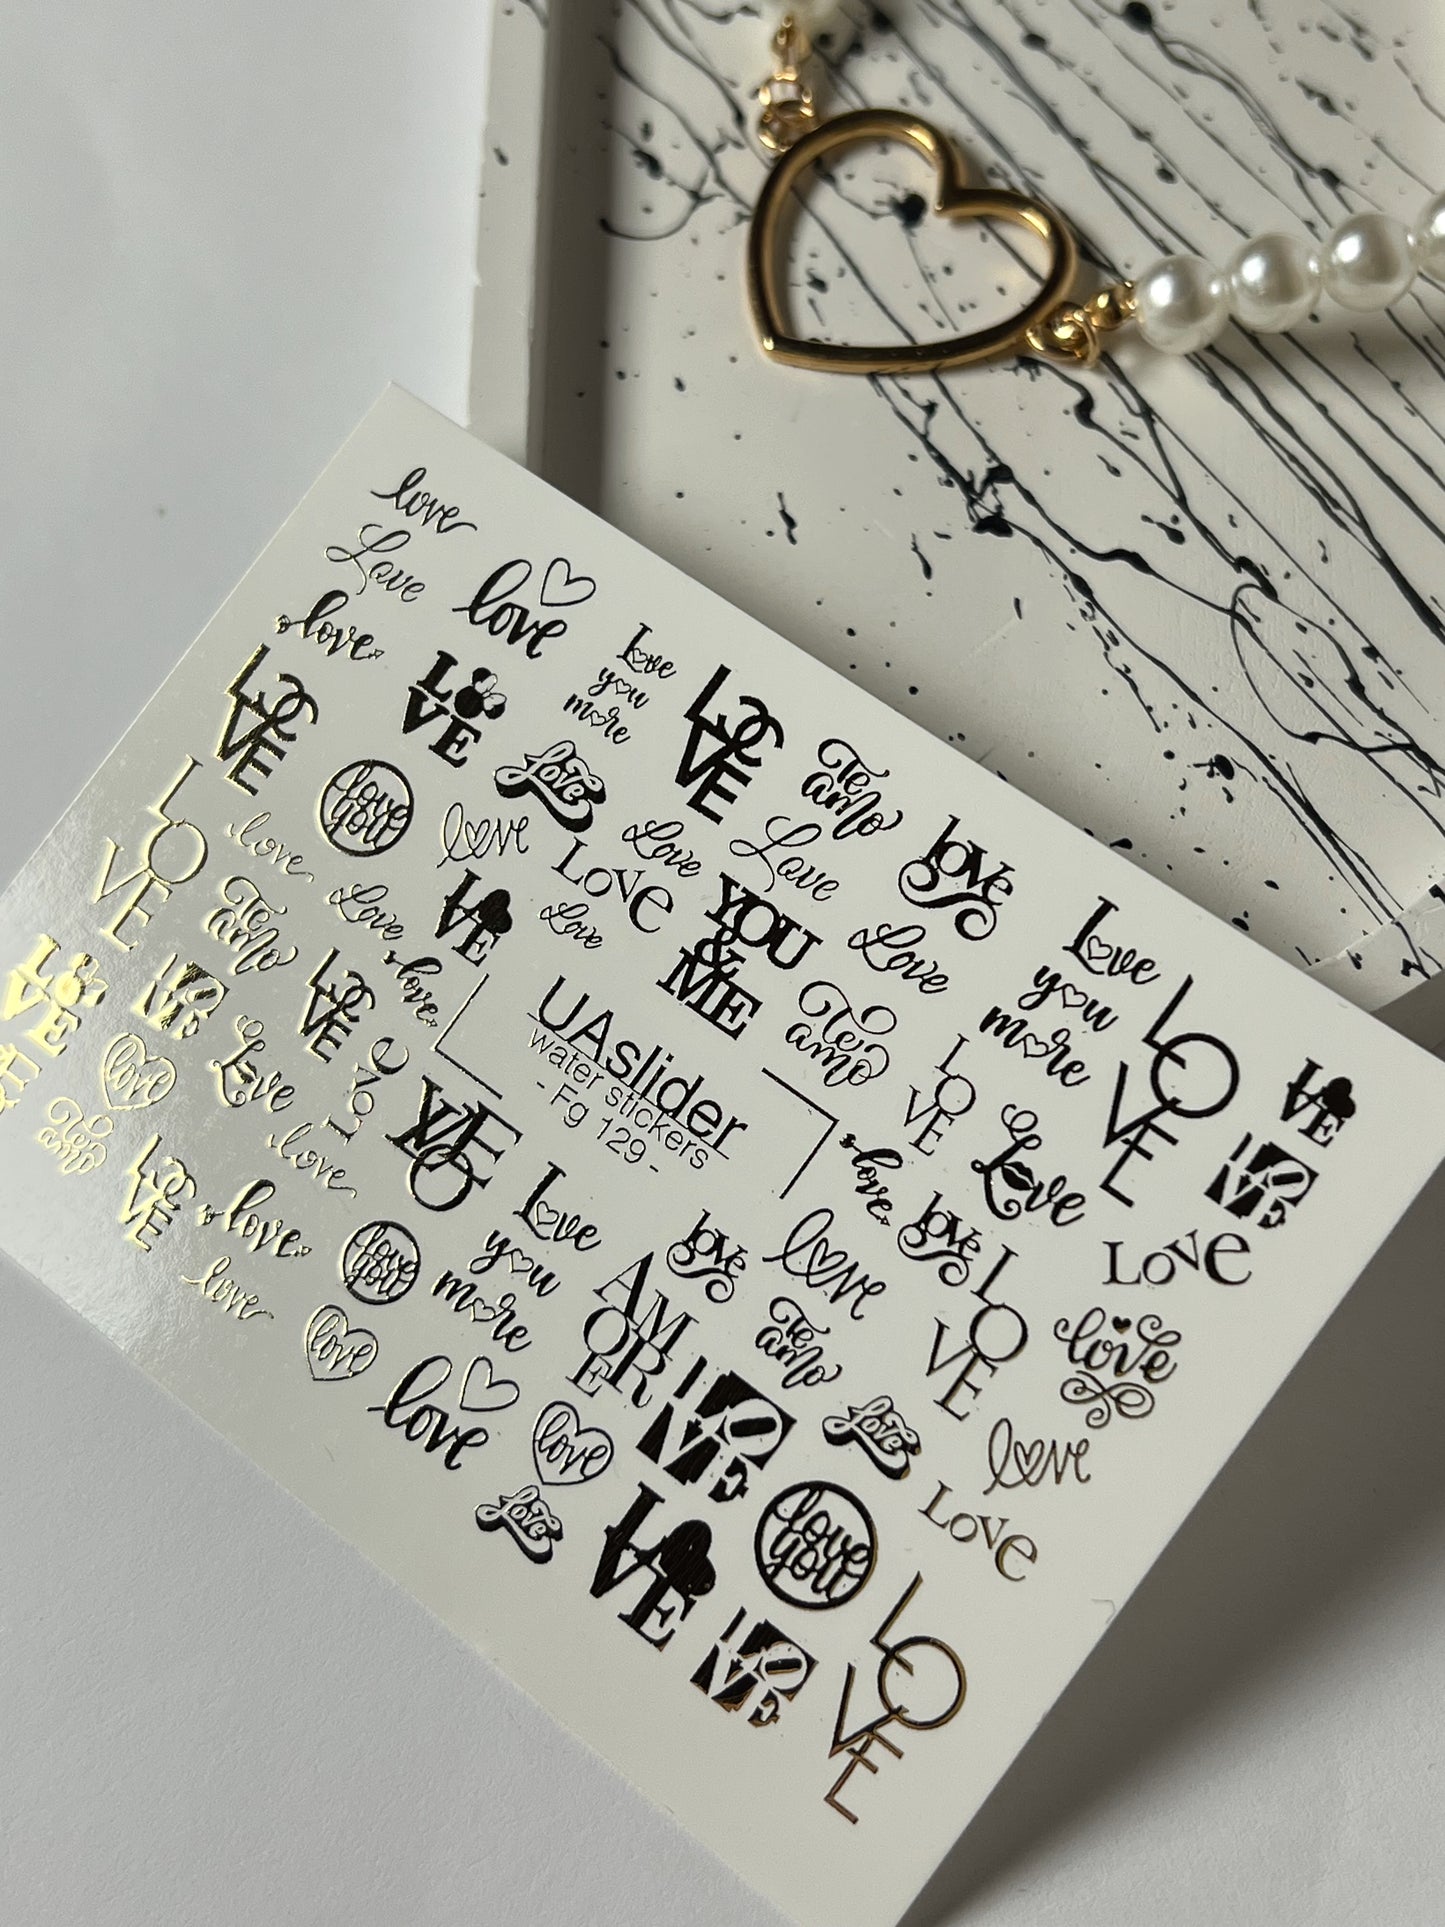 love
Love
love
love
LOVE
LOVE
Love
you
more
LOVE
Te
amo
love
LOVE
love
you
Love
love
Love
Love
LOVE
love
Te
amo
Love
LOVE
Love
LOVE
YOU
&
ME
Love
Love
you
more
LOVE
LOVE
LOVE
LOVE
love
Love
LOVE
love
LOVE
UAslider
water stickers
- Fg 129 -
Te
amo
LOVE
Love
LOVE
Te
amo
love
LOVE
love
Love
you
more
love
love
love
love
LOVE
love
love
love
you
AM
OR
E
Te
amo
LOVE
love
love
love
love
LOVE
Love
love
LOVE
Love
LOVE
love
you
LOVE
LOVE